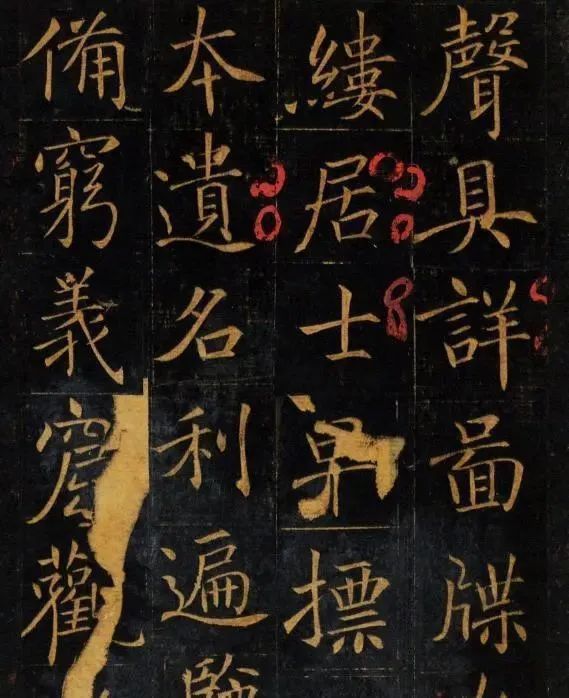 聲具詳啚牒
縷居士早標
本遺名利遍驗
備窮義觀